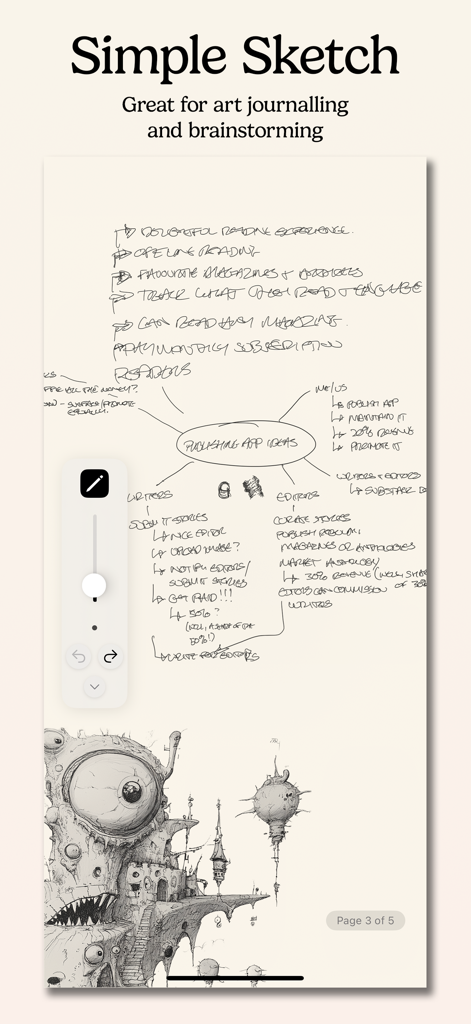 Simple Sketch
Great for art journalling
and brainstorming
DELIGHTFUL READING EXPERIENCE.
OFFLINE READING
FAVOURITE MAGAZINES + ARTICLES
TRACK WHAT THEY READ +
CAN READ MAGAZINE.
PAY MONTHLY SUBSCRIPTION
READERS
ALL THE MONEY?
EQUALLY.
ME/US
PUBLISH APP
MAINTAIN IT
20% REVENUE
PROMOTE IT
PUBLISHING APP IDEAS
WRITERS + EDITORS
SUBSTACK
WRITERS
SUBMIT STORIES
NICE EDITOR
UPLOAD IMAGE?
NOTIFY EDITORS/
SUBMIT STORIES
GET PAID!!!
50%?
(WELL, A SHARE OF THE
50%!)
WRITE FOR EDITORS
EDITORS
CURATE STORIES
PUBLISH
MAGAZINES OR ANTHOLOGIES
MARKET ANTHOLOGY
30% REVENUE (WELL,
OF
EDITORS CAN COMMISSION
WRITERS
Page 3 of 5